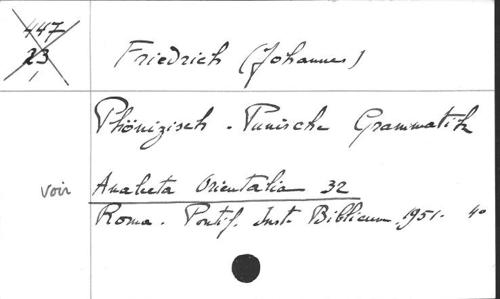 447
23
Friedrich (Johannes)
Phönizisch - Punische Grammatik
voir Analecta Orientalia 32
Roma. Pontif. Inst. Biblicum. 1951. 4o